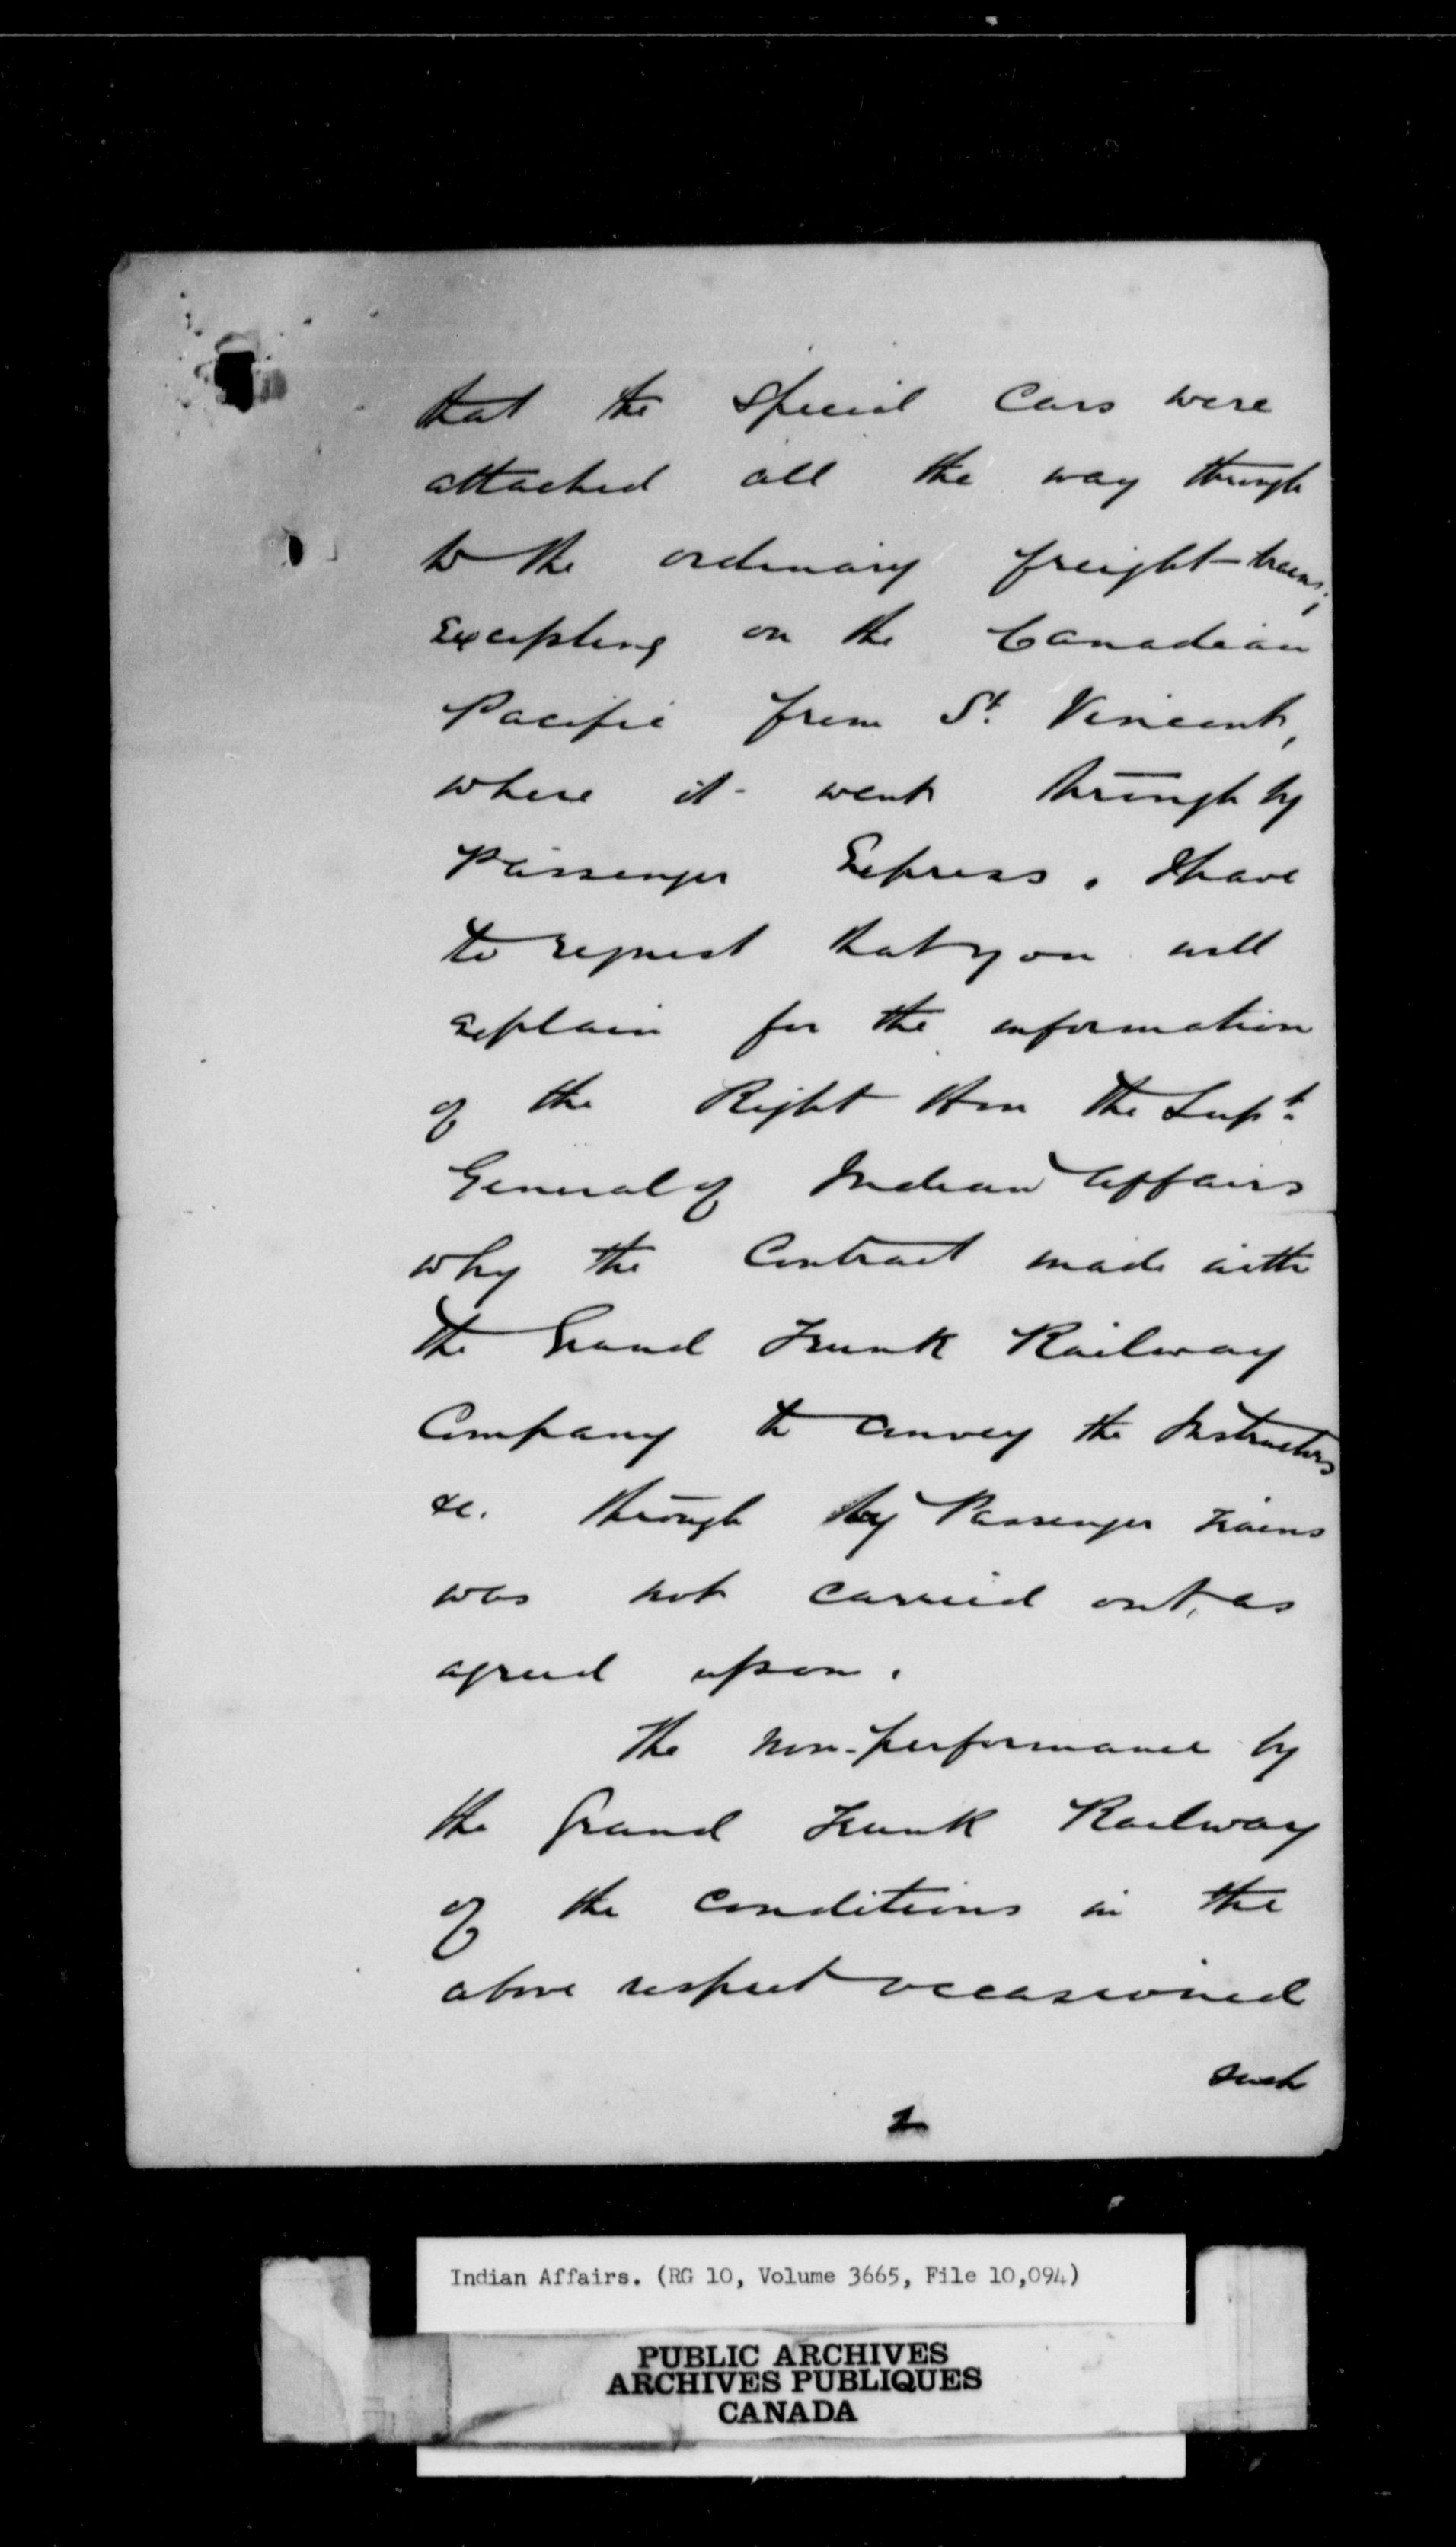 that the special Cars were
attached all the way through
to the ordinary freight-trains;
Excepting on the Canadian
Pacific from St. Vincent,
where it went through by
Passenger Express. I have
to request that you will
explain for the information
of the Right Hon the Supt.
General of Indian Affairs
why the Contract made with
the Grand Trunk Railway
Company to convey the Instructors
&c. through by Passenger Trains
was not carried out, as
agreed upon.
The non-performance by
the Grand Trunk Railway
of the conditions in the
above respect occasioned
such
2
Indian Affairs. (RG 10, Volume 3665, File 10,094)
PUBLIC ARCHIVES
ARCHIVES PUBLIQUES
CANADA